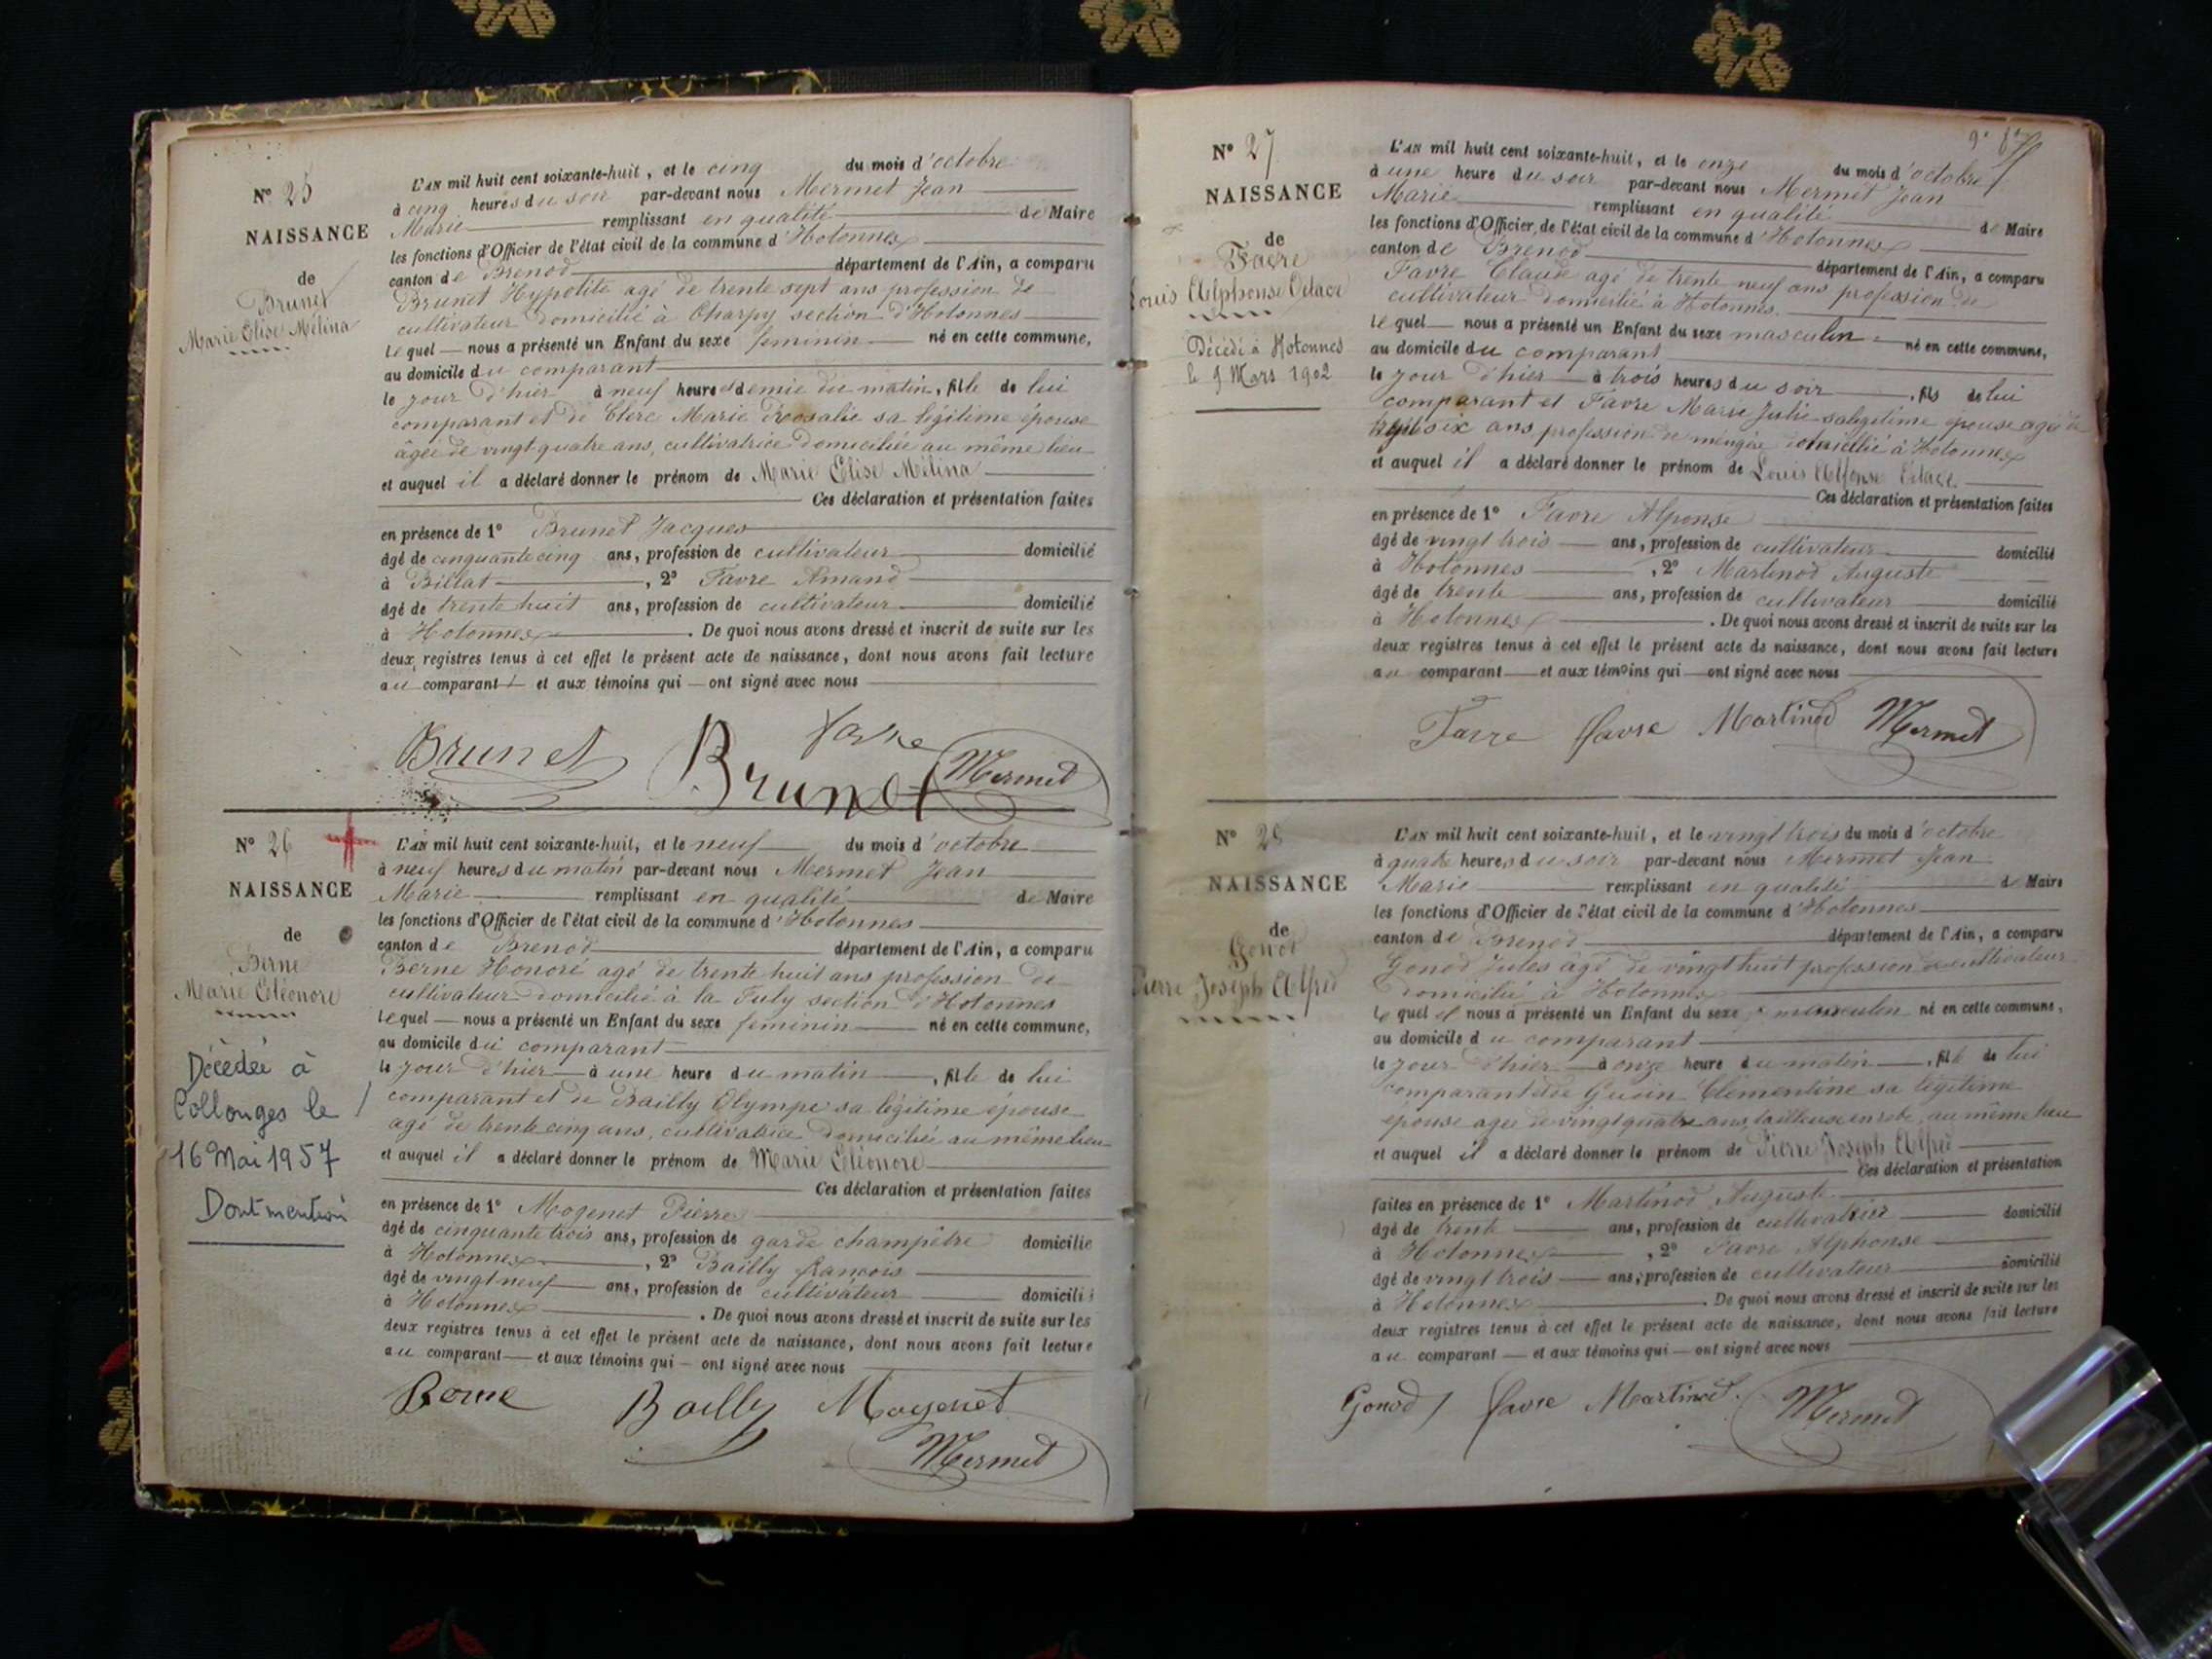 N° 25
NAISSANCE
de
Brunet
Marie Elise Mélina
L'AN mil huit cent soixante-huit, et le cinq du mois d'octobre
à cinq heures du soir par-devant nous Mermet Jean
Marie remplissant en qualité de Maire
les fonctions d'Officier de l'état civil de la commune d'Hotonnes
canton de Brenod département de l'Ain, a comparu
Brunet Hypolite agé de trente sept ans profession de
cultivateur domicilié à Charpy section d'Hotonnes
lequel nous a présenté un Enfant du sexe feminin né en cette commune,
au domicile du comparant
le jour d'hier à neuf heures demie du matin, fille de lui
comparant et de Clerc Marie Roosalie sa légitime épouse
âgée de vingt quatre ans, cultivatrice domiciliée au même lieu
et auquel il a déclaré donner le prénom de Marie Elise Mélina
Ces déclaration et présentation faites
en présence de 1° Brunet Jacques
âgé de cinquante cinq ans, profession de cultivateur domicilié
à Billat, 2° Favre Amand
âgé de trente huit ans, profession de cultivateur domicilié
à Hotonnes. De quoi nous avons dressé et inscrit de suite sur les
deux registres tenus à cet effet le présent acte de naissance, dont nous avons fait lecture
au comparant et aux témoins qui ont signé avec nous
Brunet Brunet Favre Mermet
N° 26
NAISSANCE
de
Berne
Marie Eléonore
Décédée à
Collonges le
16 Mai 1957
Dont mention
L'AN mil huit cent soixante-huit, et le neuf du mois d'octobre
à neuf heures du matin par-devant nous Mermet Jean
Marie remplissant en qualité de Maire
les fonctions d'Officier de l'état civil de la commune d'Hotonnes
canton de Brenod département de l'Ain, a comparu
Berne Honoré agé de trente huit ans profession de
cultivateur domicilié à la Fuly section d'Hotonnes
lequel nous a présenté un Enfant du sexe feminin né en cette commune,
au domicile du comparant
le jour d'hier à une heure du matin, fille de lui
comparant et de Bailly Olympe sa légitime épouse
agé de trente cinq ans, cultivatrice domiciliée au même lieu
et auquel il a déclaré donner le prénom de Marie Eléonore
Ces déclaration et présentation faites
en présence de 1° Mogenet Pierre
âgé de cinquante trois ans, profession de garde champêtre domicilié
à Hotonnes, 2° Bailly françois
âgé de vingt neuf ans, profession de cultivateur domicilié
à Hotonnes. De quoi nous avons dressé et inscrit de suite sur les
deux registres tenus à cet effet le présent acte de naissance, dont nous avons fait lecture
au comparant et aux témoins qui ont signé avec nous
Berne Bailly Mogenet
Mermet
N° 27
NAISSANCE
de
Favre
Louis Alphonse
Décédé à Hotonnes
le 9 Mars 1902
L'AN mil huit cent soixante-huit, et le onze du mois d'octobre
à une heure du soir par-devant nous Mermet Jean
Marie remplissant en qualité de Maire
les fonctions d'Officier de l'état civil de la commune d'Hotonnes
canton de Brenod département de l'Ain, a comparu
Favre Claude agé de trente neuf ans profession de
cultivateur domicilié à Hotonnes
lequel nous a présenté un Enfant du sexe masculin né en cette commune,
au domicile du comparant
le jour d'hier à trois heures du soir, fils de lui
comparant et Favre Marie Julie sa légitime épouse agé de
six ans profession de ménagère domicilié à Hotonnes
et auquel il a déclaré donner le prénom de Louis Alfonse
Ces déclaration et présentation faites
en présence de 1° Favre Alponse
âgé de vingt trois ans, profession de cultivateur domicilié
à Hotonnes, 2° Martinod Auguste
âgé de trente ans, profession de cultivateur domicilié
à Hotonnes. De quoi nous avons dressé et inscrit de suite sur les
deux registres tenus à cet effet le présent acte de naissance, dont nous avons fait lecture
au comparant et aux témoins qui ont signé avec nous
Favre favre Martinod Mermet
N° 28
NAISSANCE
de
Gonod
Pierre Joseph Alfred
L'AN mil huit cent soixante-huit, et le vingt trois du mois d'octobre
à quatre heures du soir par-devant nous Mermet Jean
Marie remplissant en qualité de Maire
les fonctions d'Officier de l'état civil de la commune d'Hotonnes
canton de Brenod département de l'Ain, a comparu
Gonod Jules âgé de vingt huit profession de cultivateur
domicilié à Hotonnes
lequel il nous a présenté un Enfant du sexe masculin né en cette commune,
au domicile du comparant
le jour d'hier à onze heure du matin, fils de lui
comparant et de Guoin Clémentine sa légitime
épouse agée de vingt quatre ans, tailleuse en robe, au même lieu
et auquel il a déclaré donner le prénom de Pierre Joseph Alfred
Ces déclaration et présentation
faites en présence de 1° Martinod Auguste
âgé de trente ans, profession de cultivateur domicilié
à Hotonnes, 2° Favre Alphonse
âgé de vingt trois ans, profession de cultivateur domicilié
à Hotonnes. De quoi nous avons dressé et inscrit de suite sur les
deux registres tenus à cet effet le présent acte de naissance, dont nous avons fait lecture
au comparant et aux témoins qui ont signé avec nous
Gonod favre Martinod Mermet